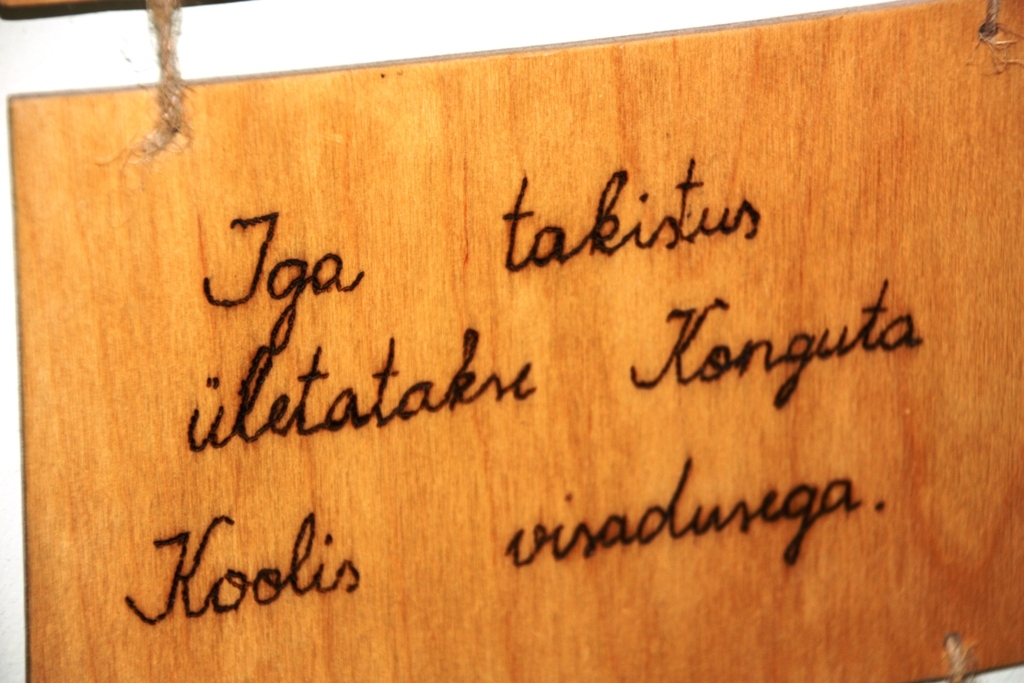 Iga takistus
ületatakse Konguta
Koolis visadusega.